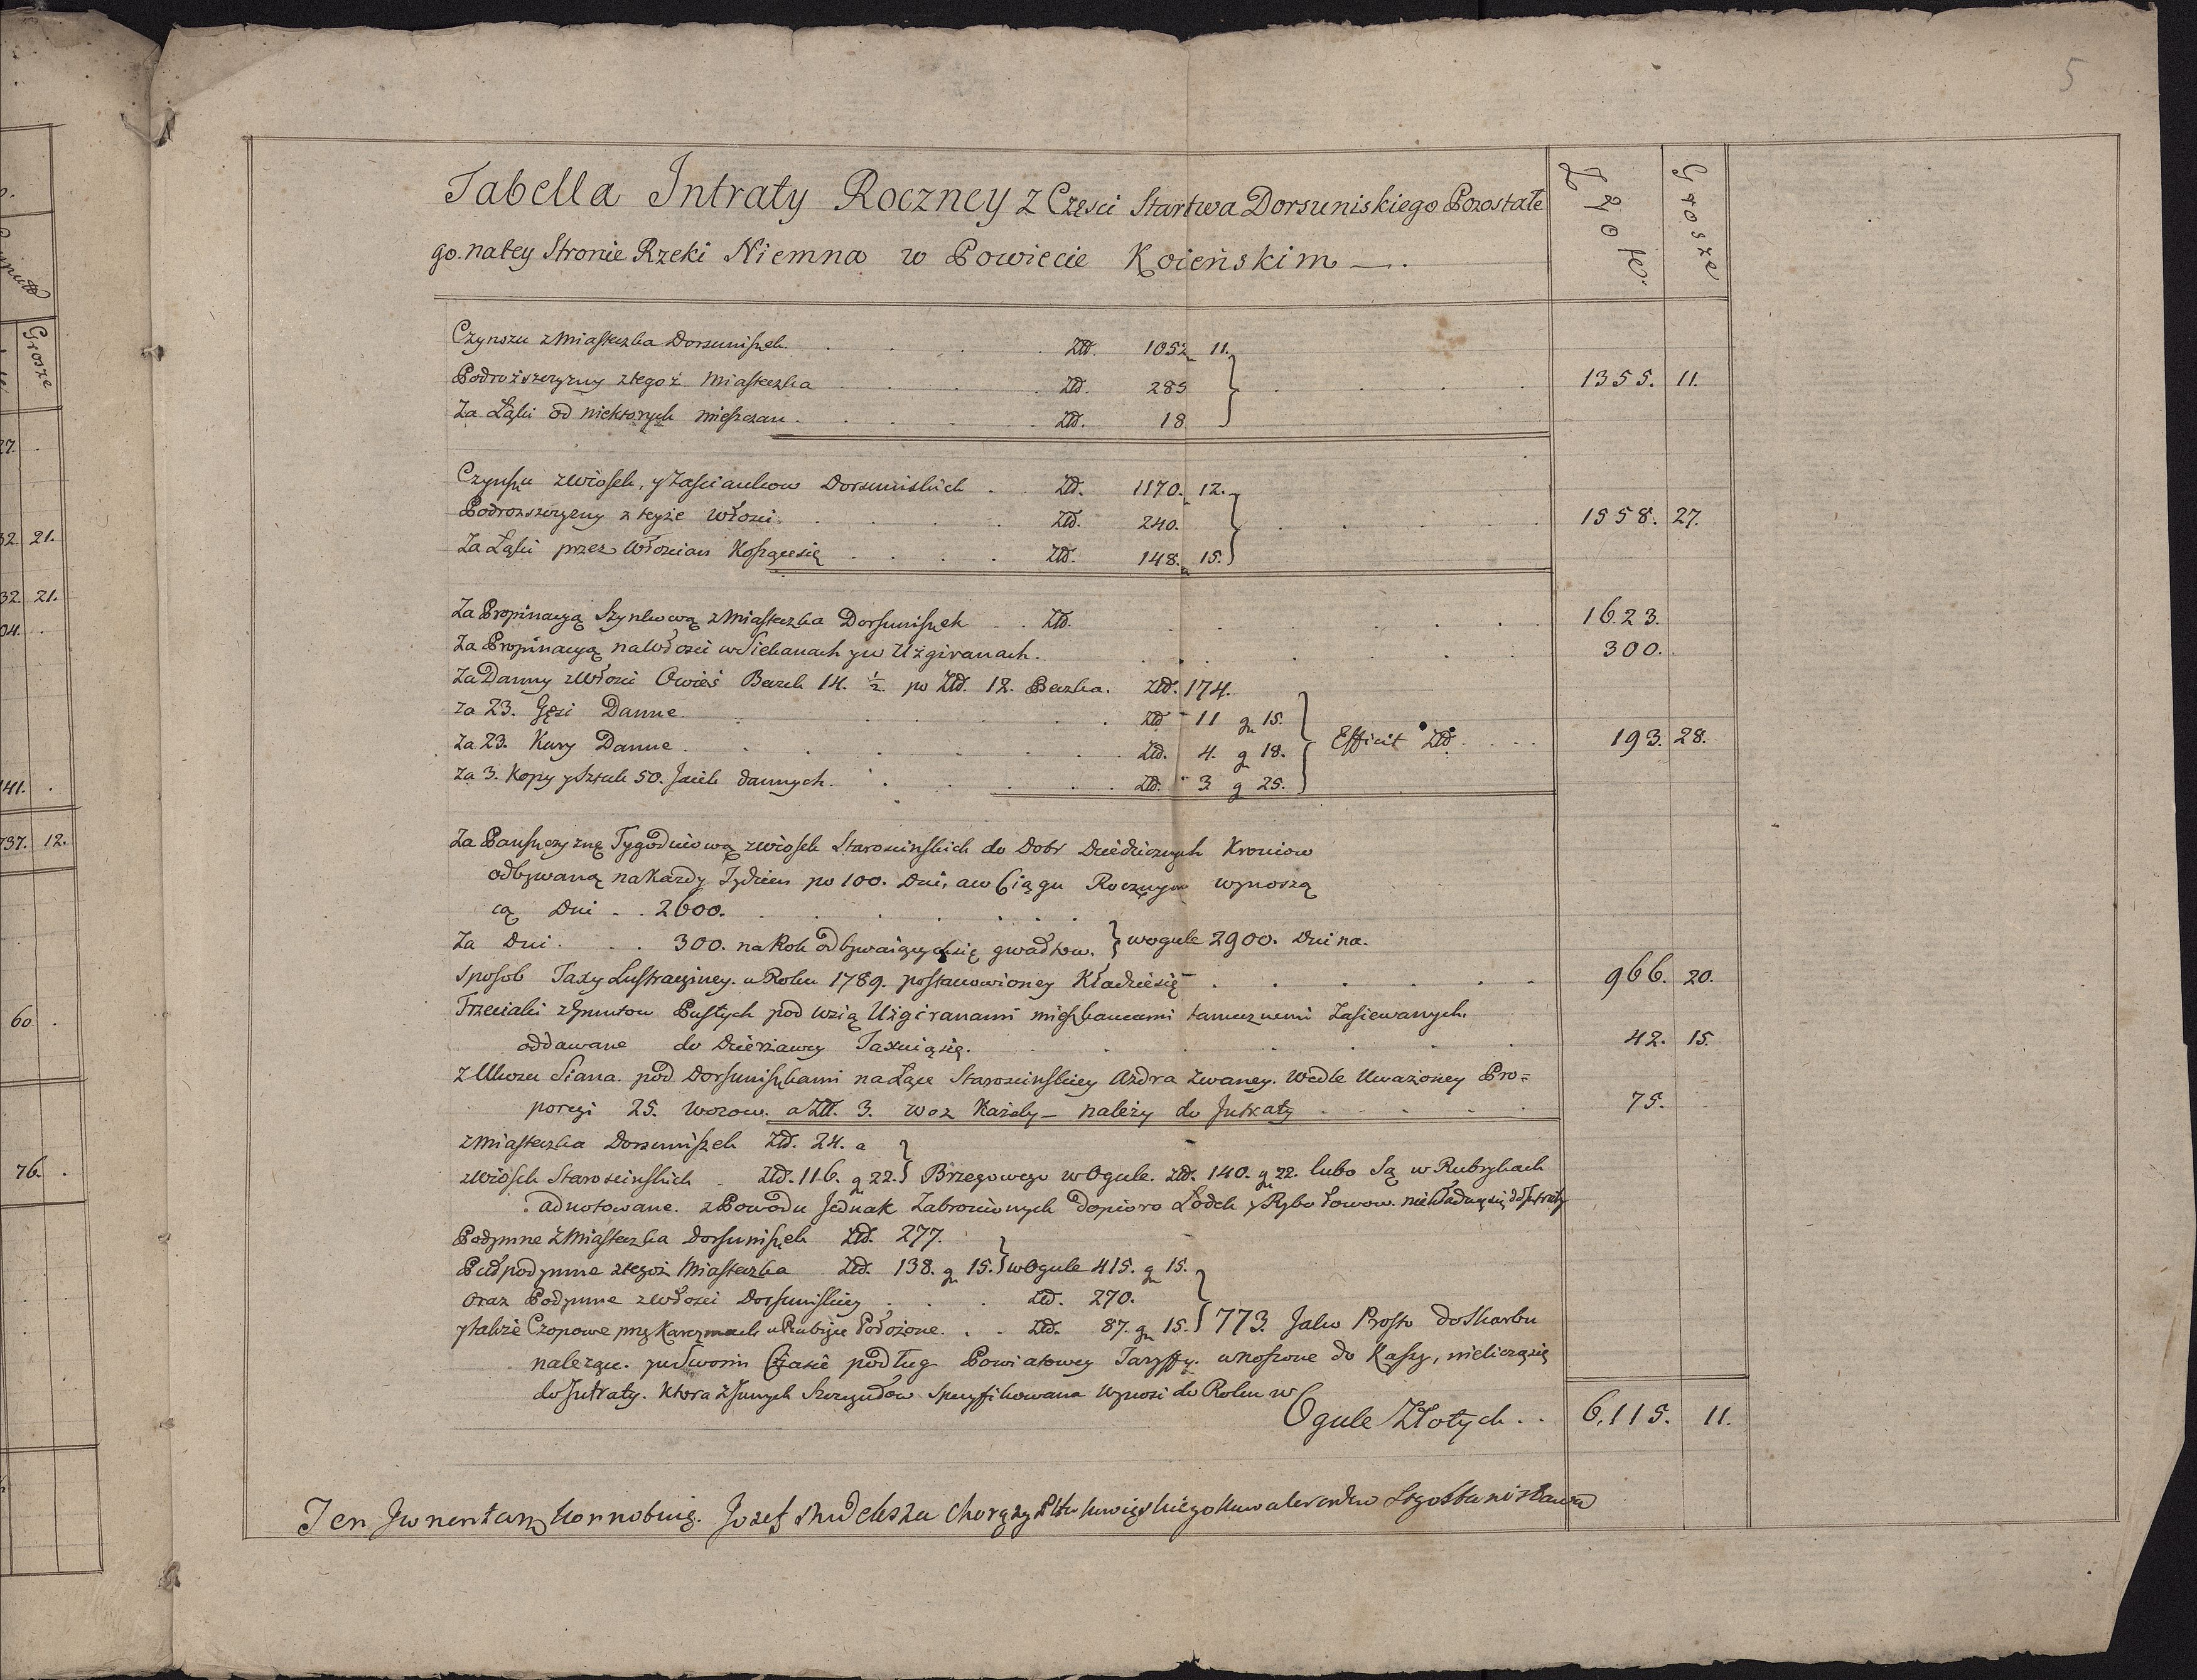 5
Tabella Intraty Roczney z Częsci Startwa Dorsuniskiego Pozostałe
go na tey Stronie Rzeki Niemna w Powiecie Kowieńskim
Złote. Grosze
Czynszu z Miasteczka Dorsuniszek Złł. 1052 11.
Podroższczyzny z tegoż Miasteczka Złł. 285 1355. 11.
Za Łąki od niektorych mieszczan Złł. 18
Czynszu z Wiosek, y Zascianków Dorsuniskich Złł. 1170. 12.
Podrozszczyzny z teyże Włosci Złł. 240. 1558. 27.
Za Łąki przez Włoscian Koszące się Złł. 148. 15.
Za Propinacyą Szynkową z Miasteczka Dorsuniszek Złł. 1623.
Za Propinacyą na Włosci w Siekanach y w Użgiranach. 300.
Za Danny z Włosci Owies Beczek 14. ½. po Złł. 12. Beczka. Złł. 174.
za 23. Gęsi Danne Złł 11 gr 15.
za 23. Kury Danne Złł. 4. g 18. Efficit Złł. 193. 28.
za 3. Kopy y Sztuk 50. Jaiek dannych. Złł. 3 g 25.
Za Panszczyznę Tygodniową z wiosek Starościnskich do Dobr Dziedzicznych Kroniow
odbywaną na Kazdy Tydzien po 100. Dni, a w Ciągu Rocznym wynoszą
cą Dni 2600.
Za Dni 300. na Rok odbywaiących się gwałtow. w ogule 2900. Dni na
sposob Taxy Lustracyiney w Roku 1789. postanowioney Kładzie się 966. 20.
Trzeciaki z Gruntow Pustych pod wsią Użgiranami mieszkancami tamecznemi Zasiewanych.
oddawane do Dzierżawy Taxuią się. 42. 15.
z Ukosu Siana pod Dorsuniszkami na Łące Starościnskiey Azdra zwaney. Wedle Uważoney Pro=
porcyi 25. Wozow. a Złł. 3. woz Każdy – należy do Intraty 75.
z Miasteczka Dorsuniszek Złł. 24. a
z Wiosek Starościnskich Złł. 116. g 22. Brzegowego w Ogule. Złł. 140. g 22. lubo Są w Rubrykach
adnotowane. z Powodu Jednak Zabronionych dopioro Łodek y Rybołowow. nie Kładną się do Intraty
Podymne z Miasteczka Dorsuniszek Złł. 277.
Pułpodymne z tegoż Miasteczka Złł. 138. g 15. w Ogule 415. g 15.
Oraz Podymne z Włosci Dorsuniskiey Złł. 270.
y także Czopowe przy Karczmach w Rubryce Położone. Złł. 87. g 15. 773. Jako Prosto do Skarbu
należące. y w Swoim Czasie podług Powiatowey Taryffy. wnoszone do Kassy, nie liczą się
do Intraty. Ktora z Innych Szczegułow specyfikowana wynosi do Roku w
Ogule Złotych 6,115. 11.
Ten Jnwentarz Jozef Chorąży Stgo Stanisława
27.
32. 21.
32. 21.
04.
141.
737. 12.
60
76.
Grosze